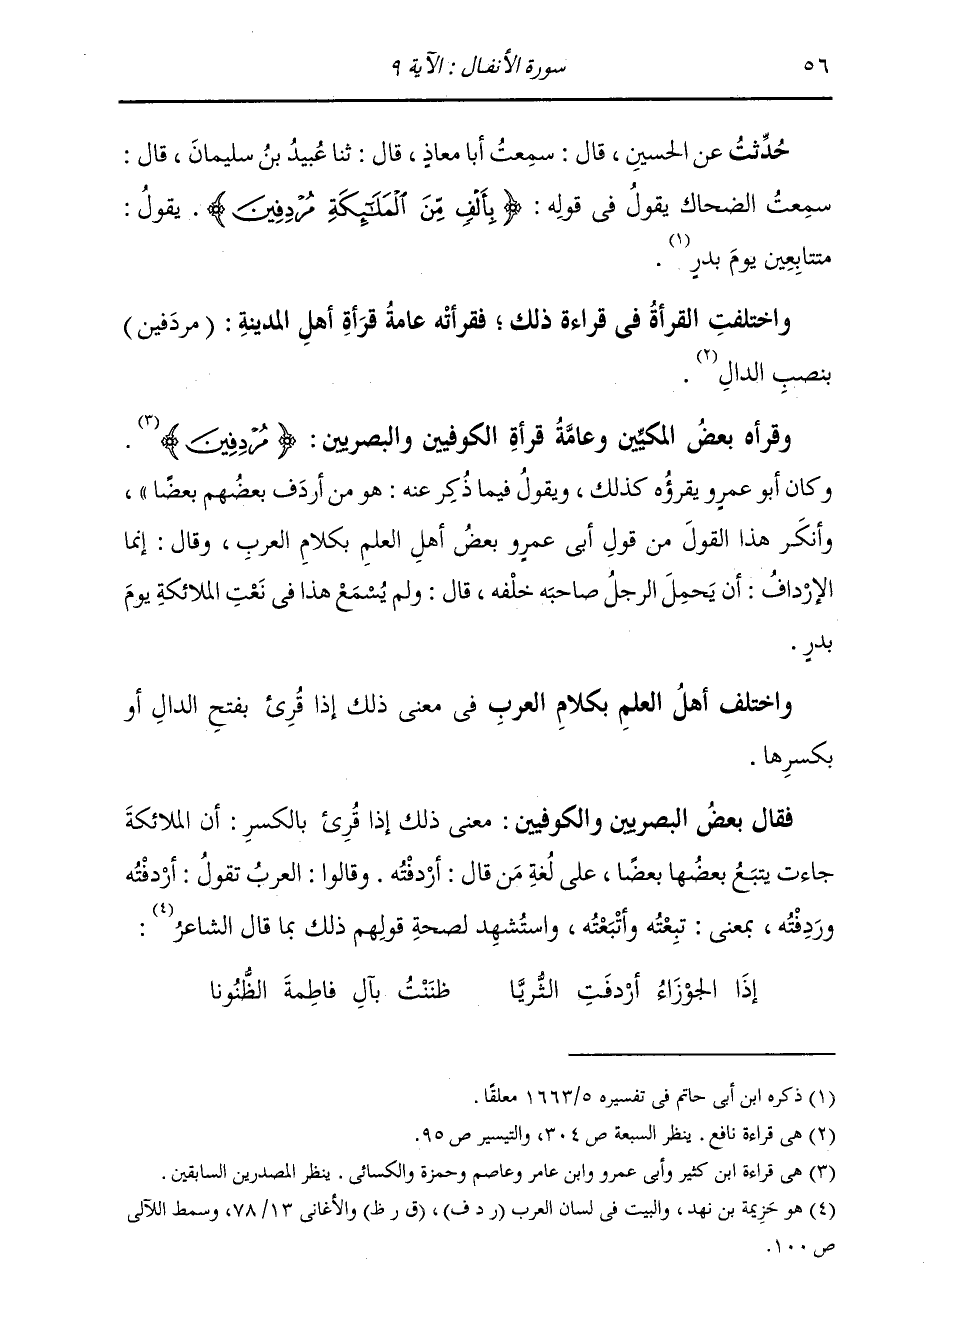 ٥٦ سورة الأنفال : الآية ٩
حُدِّثتُ عن الحسينِ ، قال : سمِعتُ أبا معاذٍ ، قال : ثنا عُبيدُ بنُ سليمانَ ، قال :
سمِعتُ الضحاكَ يقولُ فى قولِه : ﴿ بِأَلْفٍ مِّنَ ٱلْمَلَـٰٓئِكَةِ مُرْدِفِينَ ﴾ . يقولُ :
متتابِعِين يومَ بدرٍ(١) .
واختلفتِ القرأةُ فى قراءة ذلك ؛ فقرأتْه عامةُ قرَأةِ أهلِ المدينةِ : ( مردَفين )
بنصبِ الدالِ(٢) .
وقرأه بعضُ المكيِّين وعامَّةُ قرأةِ الكوفيين والبصريين : ﴿ مُرْدِفِينَ ﴾(٣) .
وكان أبو عمرٍو يقرؤُه كذلك ، ويقولُ فيما ذُكِر عنه : هو من أردَف بعضُهم بعضًا » ،
وأنكَر هذا القولَ من قولِ أبى عمرٍو بعضُ أهلِ العلمِ بكلامِ العربِ ، وقال : إنما
الإرْدافُ : أن يَحمِلَ الرجلُ صاحبَه خلْفه ، قال : ولم يُسْمَعْ هذا فى نَعْتِ الملائكةِ يومَ
بدرٍ .
واختلف أهلُ العلمِ بكلامِ العربِ فى معنى ذلك إذا قُرِئ بفتحِ الدالِ أو
بكسرِها .
فقال بعضُ البصريين والكوفيين : معنى ذلك إذا قُرِئ بالكسرِ : أن الملائكةَ
جاءت يتبَعُ بعضُها بعضًا ، على لُغةِ مَن قال : أرْدفْتُه . وقالوا : العربُ تقولُ : أرْدفْتُه
ورَدِفْتُه ، بمعنى : تبِعْتُه وأتْبَعْتُه ، واستُشهِد لصحةِ قولِهم ذلك بما قال الشاعرُ(٤) :
إذَا الجوْزَاءُ أرْدفَتِ الثُّريَّا ظنَنْتُ بآلِ فاطِمةَ الظُّنُونا
(١) ذكره ابن أبى حاتم فى تفسيره ١٦٦٣/٥ معلقًا .
(٢) هى قراءة نافع . ينظر السبعة ص ٣٠٤، والتيسير ص ٩٥.
(٣) هى قراءة ابن كثير وأبى عمرو وابن عامر وعاصم وحمزة والكسائى . ينظر المصدرين السابقين .
(٤) هو خَزِيمة بن نهد ، والبيت فى لسان العرب (ر د ف) ، (ق ر ظ) والأغانى ٧٨/١٣، وسمط اللآلى
ص ١٠٠.